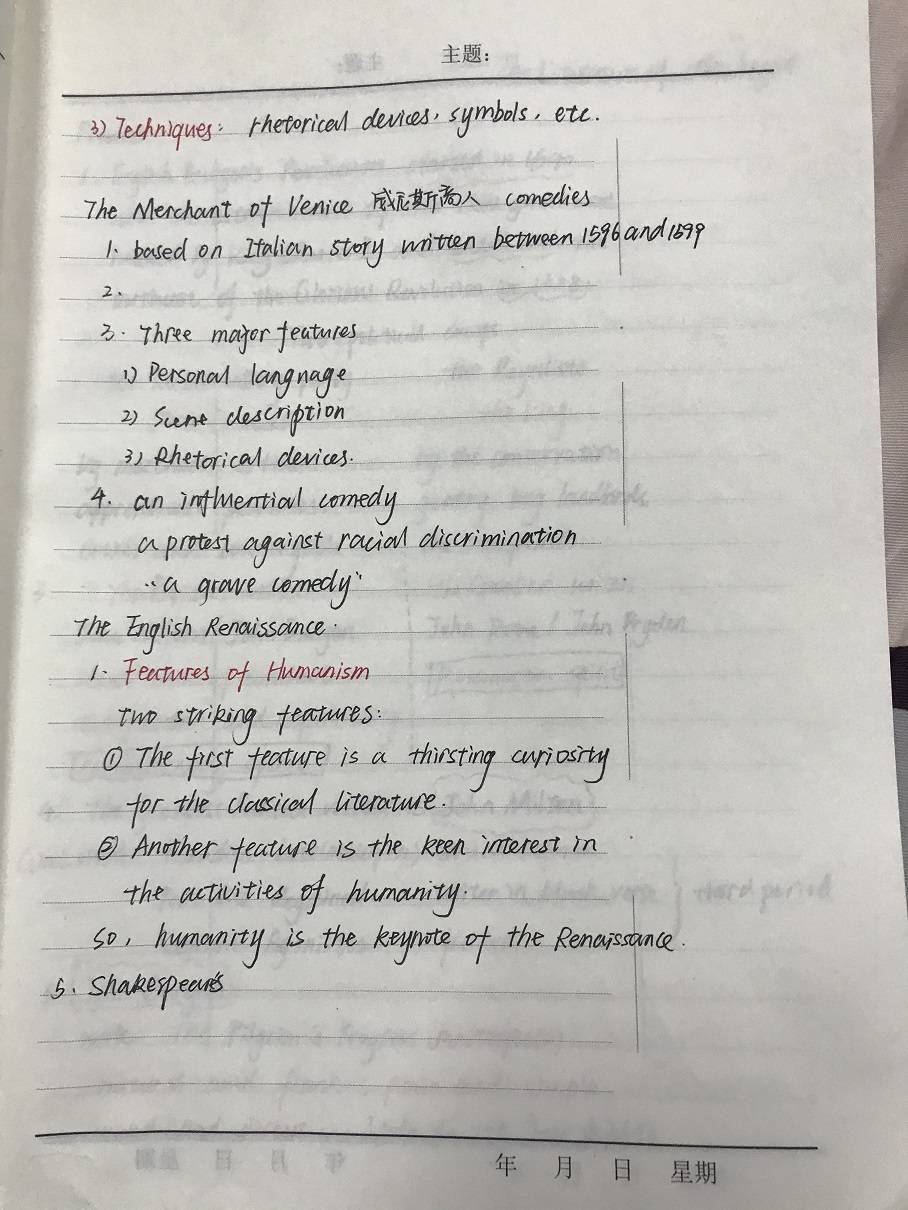 主题:
3) Techniques: rhetorical devices, symbols, etc.
The Merchant of Venice 威尼斯商人 comedies
1. based on Italian story written between 1596 and 1599
2.
3. Three major features
1) Personal language
2) Scene description
3) Rhetorical devices.
4. an influential comedy
a protest against racial discrimination
"a grave comedy"
The English Renaissance.
1. Features of Humanism
Two striking features:
① The first feature is a thirsting curiosity
for the classical literature.
② Another feature is the keen interest in
the activities of humanity.
So, humanity is the keynote of the Renaissance.
5. Shakespeare's
年 月 日 星期